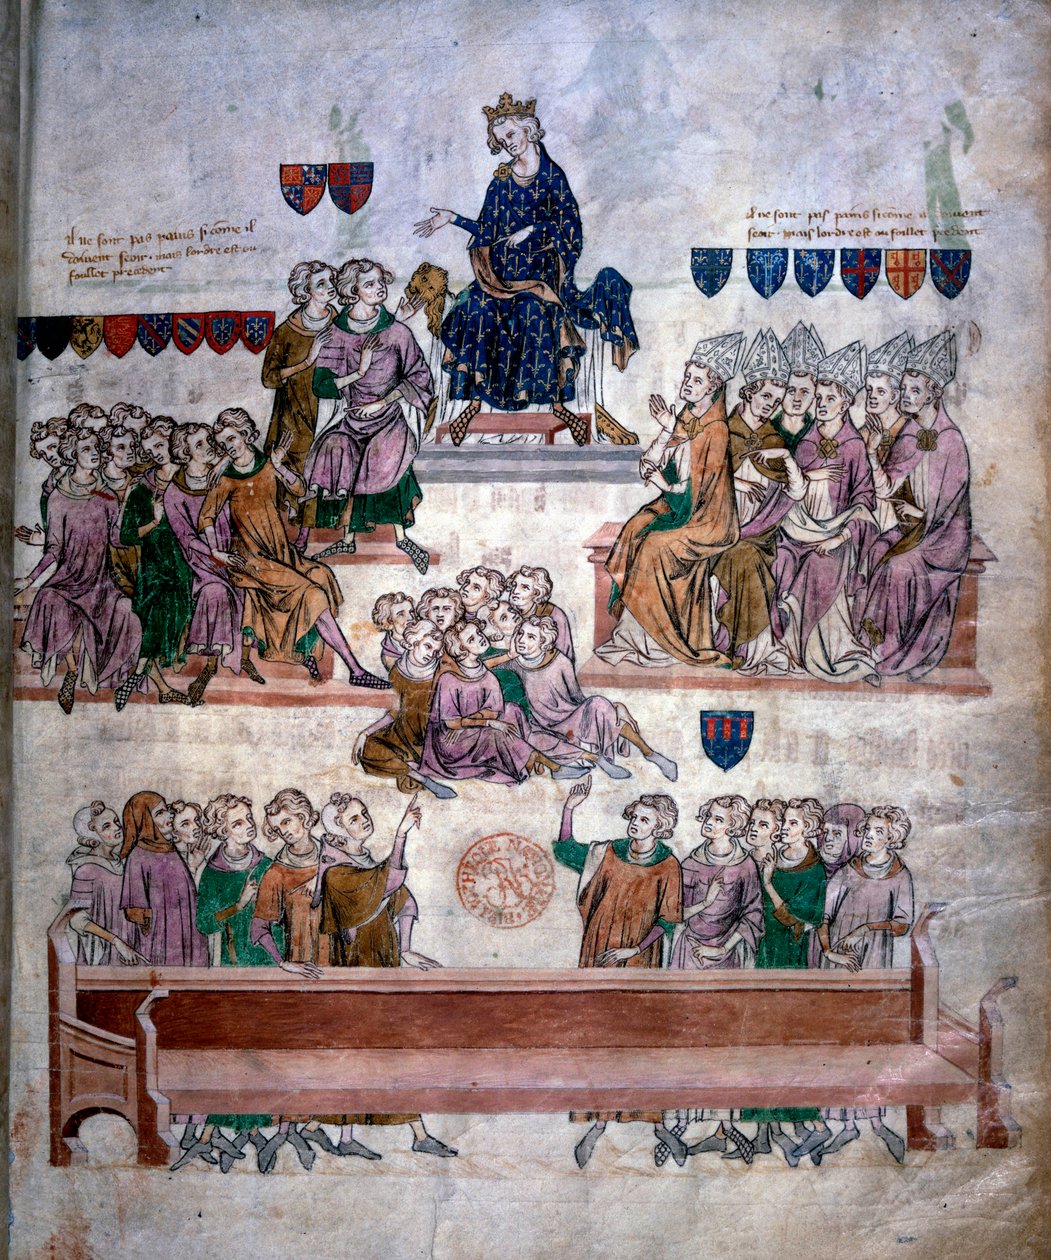 il ne sont pas pains si come il
doivent seoir mais lordre est ou
foillet precedent
il ne sont pas pains si come il doivent
seoir mais lordre est ou foillet precedent